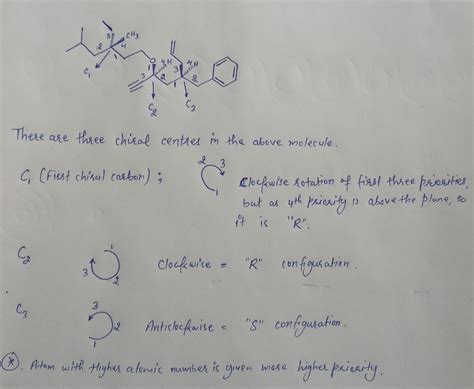 3 CH3
2 4
1
C1
O 4H 4H
3 1 3
2 1 2
C2 C3
There are three chiral centres in the above molecule.
C1 (First chiral carbon) ; 2 3 1 Clockwise rotation of first three priorities,
but as 4th priority is above the plane, so
it is "R".
C2 1 3 2 Clockwise = "R" configuration.
C3 3 2 1 Anticlockwise = "S" configuration.
* . Atom with Higher atomic number is given more higher priority.